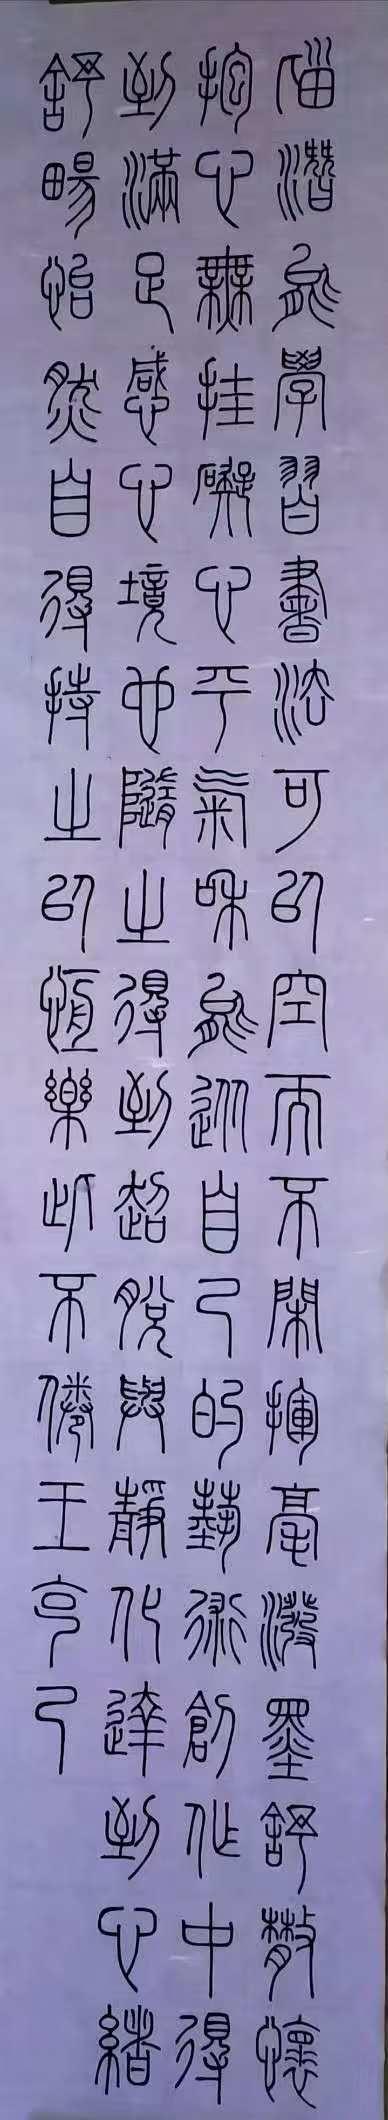 潛能學習書法可以空而不閑揮毫潑墨舒散懷
抱心無挂礙心平氣和能從自己的藝術創作中得
到滿足感心境也隨之得到超脫與靜化達到心緒
舒暢怡然自得持之以恆樂此不倦王亨